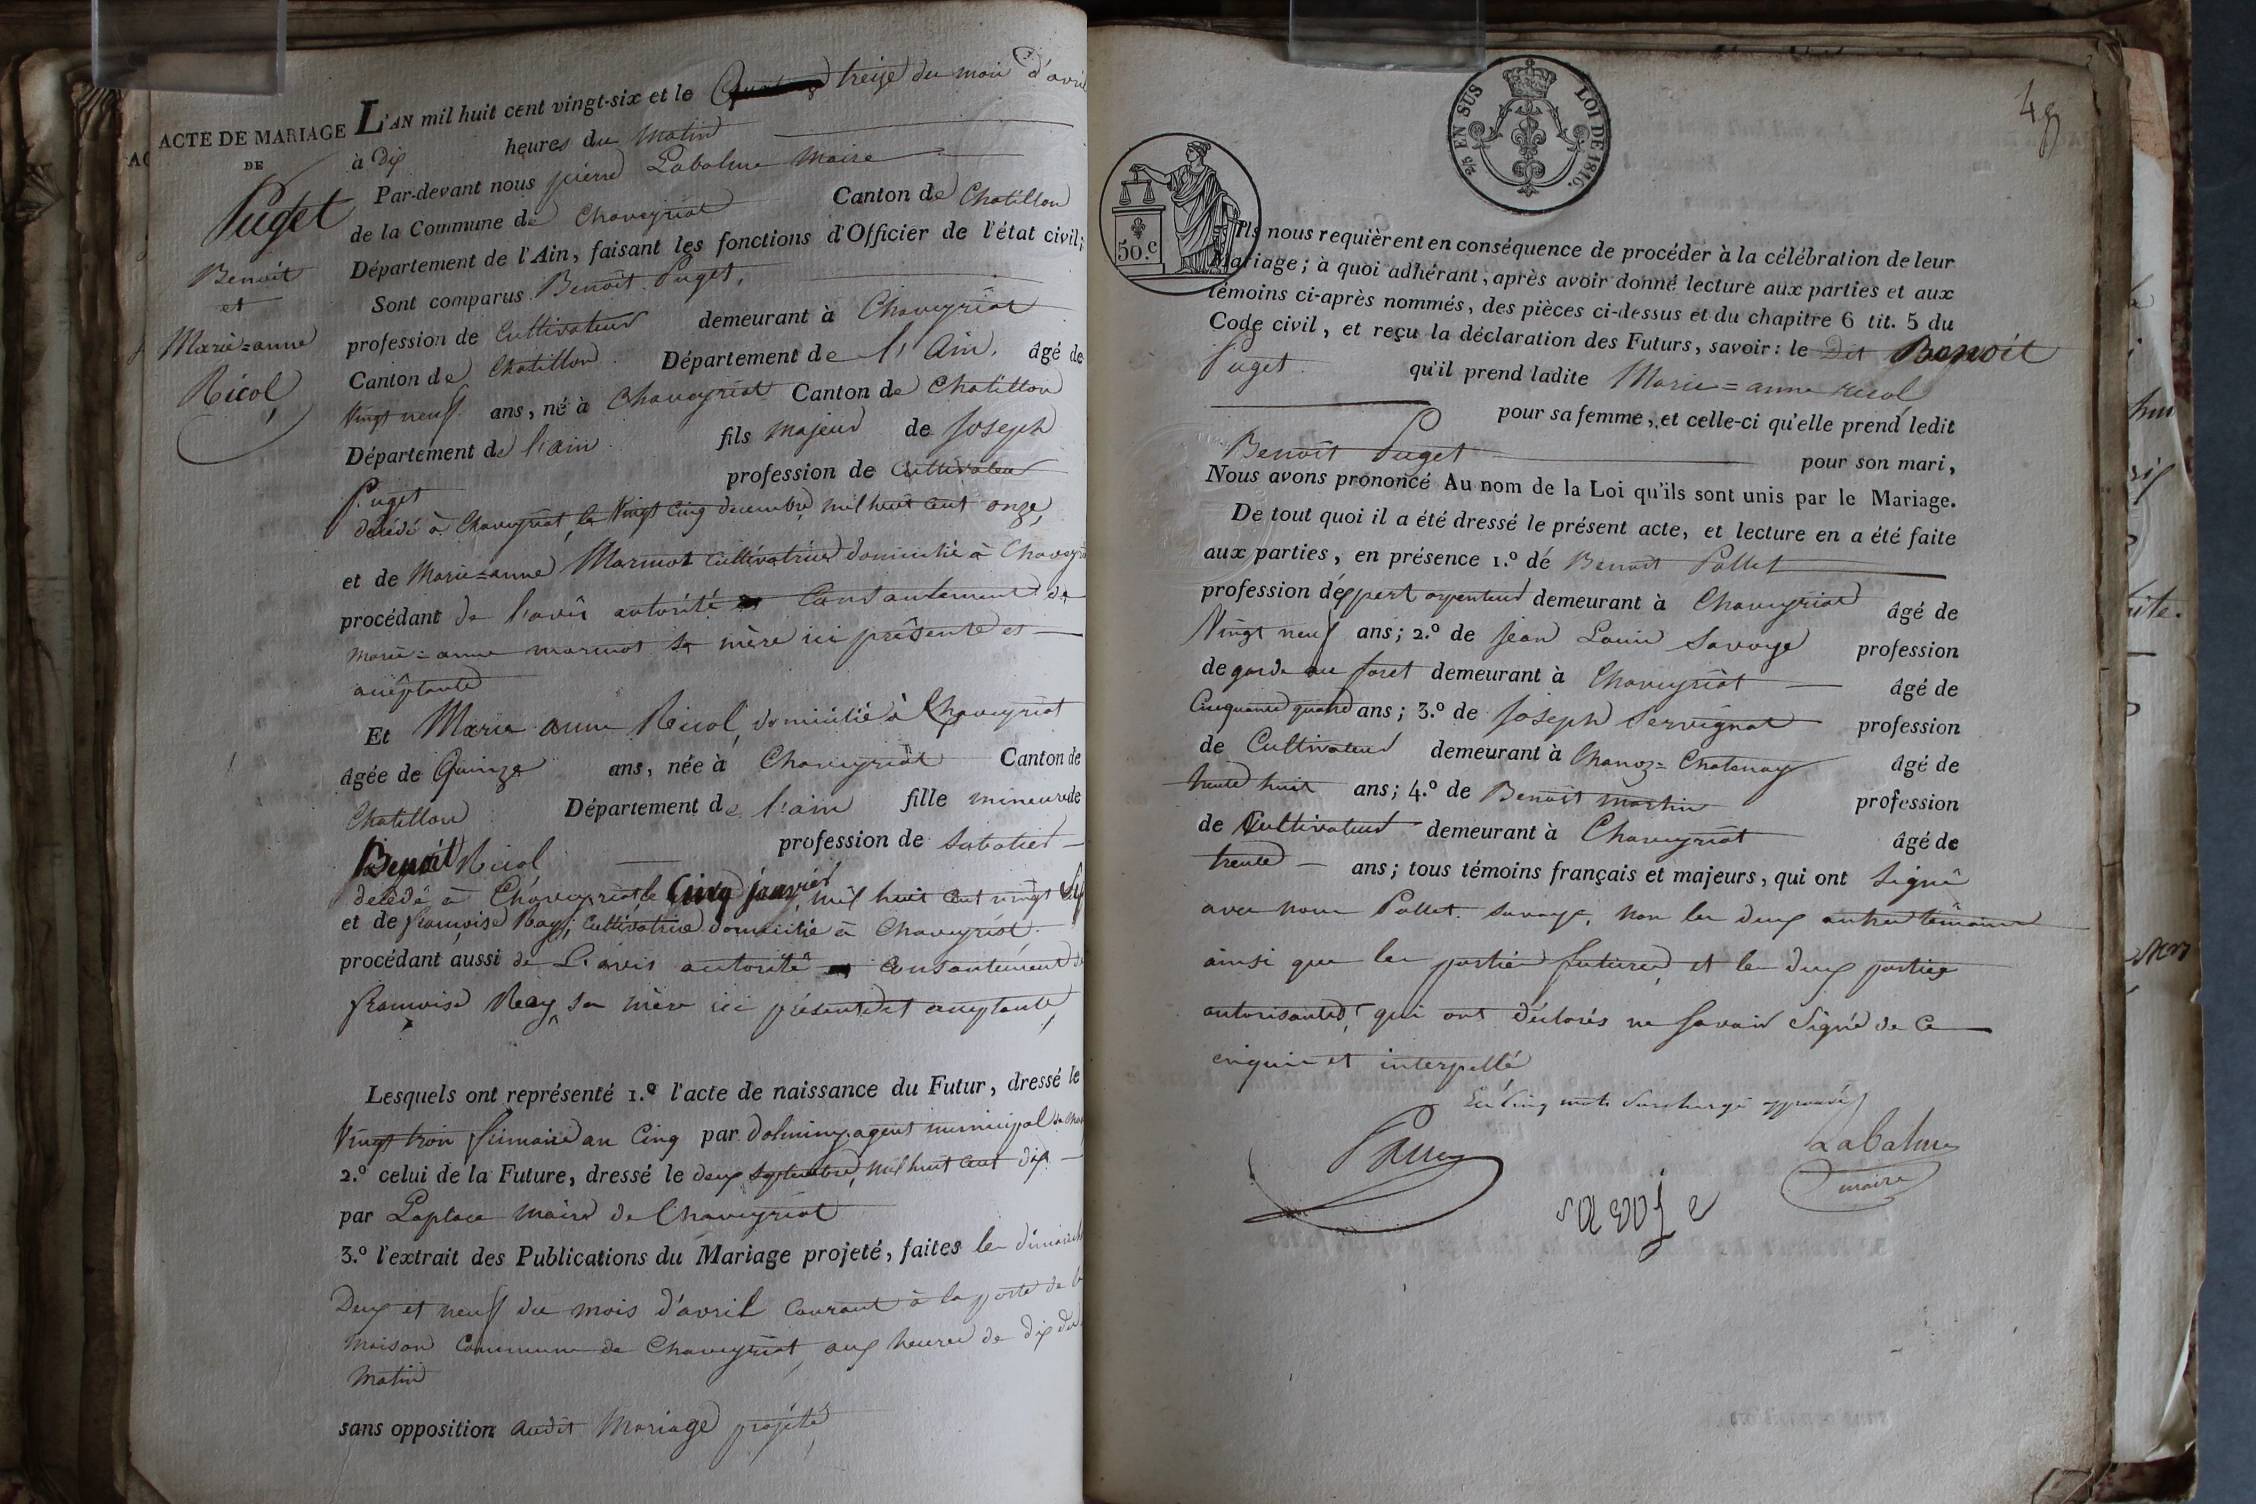 ACTE DE MARIAGE
DE
Puget
Benoit
et
Marie=anne
Ricol
L'AN mil huit cent vingt-six et le treize du mois d'avril
à dix heures du matin
Par-devant nous pierre Labalme Maire
de la Commune de Chaveyriat Canton de Chatillon
Département de l'Ain, faisant les fonctions d'Officier de l'état civil;
Sont comparus Benoit Puget,
profession de Cultivateur demeurant à Chaveyriat
Canton de Chatillon Département de l'Ain, âgé de
Vingt neuf ans, né à Chaveyriat Canton de Chatillon
Département de l'ain fils majeur de Joseph
Puget profession de Cultivateur
décédé à Chaveyriat, le Vingt Cinq decembre mil huit cent onze,
et de Marie=anne Marmot Cultivatrice domicilié à Chaveyria
procédant de l'avis autorité Consantement de
marie=anne marmot sa mère ici présente et
acceptante
Et Marie anne Ricol, domicilié à Chaveyriat
âgée de Quinze ans, née à Chaveyriat Canton de
Chatillon Département de l'ain fille mineure de
Benoit Ricol profession de Sabotier
décédé à Chaveyriat le Cinq janvier mil huit cent vingt Six
et de françoise Ray, Cultivatrice domicilié à Chaveyriat
procédant aussi de L'avis autorité Consantement de
françoise Ray sa mère ici présente et acceptante,
Lesquels ont représenté 1.º l'acte de naissance du Futur, dressé le
Vingt trois frimaire an Cinq par agent municipal
2.º celui de la Future, dressé le deux septembre, mil huit cent dix
par Laplace maire de Chaveyriat
3.º l'extrait des Publications du Mariage projeté, faites les dimanches
Deux et neuf du mois d'avril Courant à la porte de la
maison Commune de Chaveyriat, aux heures de dix du
matin
sans opposition audit Mariage projeté,
48
2/5 EN SUS LOI DE 1816.
50.c
Ils nous requièrent en conséquence de procéder à la célébration de leur
Mariage; à quoi adhérant, après avoir donné lecture aux parties et aux
témoins ci-après nommés, des pièces ci-dessus et du chapitre 6 tit. 5 du
Code civil, et reçu la déclaration des Futurs, savoir: le Dit Benoit
Puget qu'il prend ladite Marie=anne ricol
pour sa femme, et celle-ci qu'elle prend ledit
Benoit Puget pour son mari,
Nous avons prononcé Au nom de la Loi qu'ils sont unis par le Mariage.
De tout quoi il a été dressé le présent acte, et lecture en a été faite
aux parties, en présence 1.º de Benoit Pallet
profession d'expert arpenteur demeurant à Chaveyriat âgé de
Vingt neuf ans; 2.º de Jean Louis Savoye profession
de garde au foret demeurant à Chaveyriat âgé de
Cinquante quatre ans; 3.º de Joseph Servignat profession
de Cultivateur demeurant à Chanoz=Chatenay âgé de
trente huit ans; 4.º de Benoit Martin profession
de Cultivateur demeurant à Chaveyriat âgé de
trente ans; tous témoins français et majeurs, qui ont Signé
avec nous Pallet. Savoye, non les deux autres témoins
ainsi que les parties futures et les deux parties
autorisantes, qui ont déclarés ne savoir Signé de Ce
enquis et interpellé
Les Cinq mots Surchargé approuvés
Labalme
maire
savoye